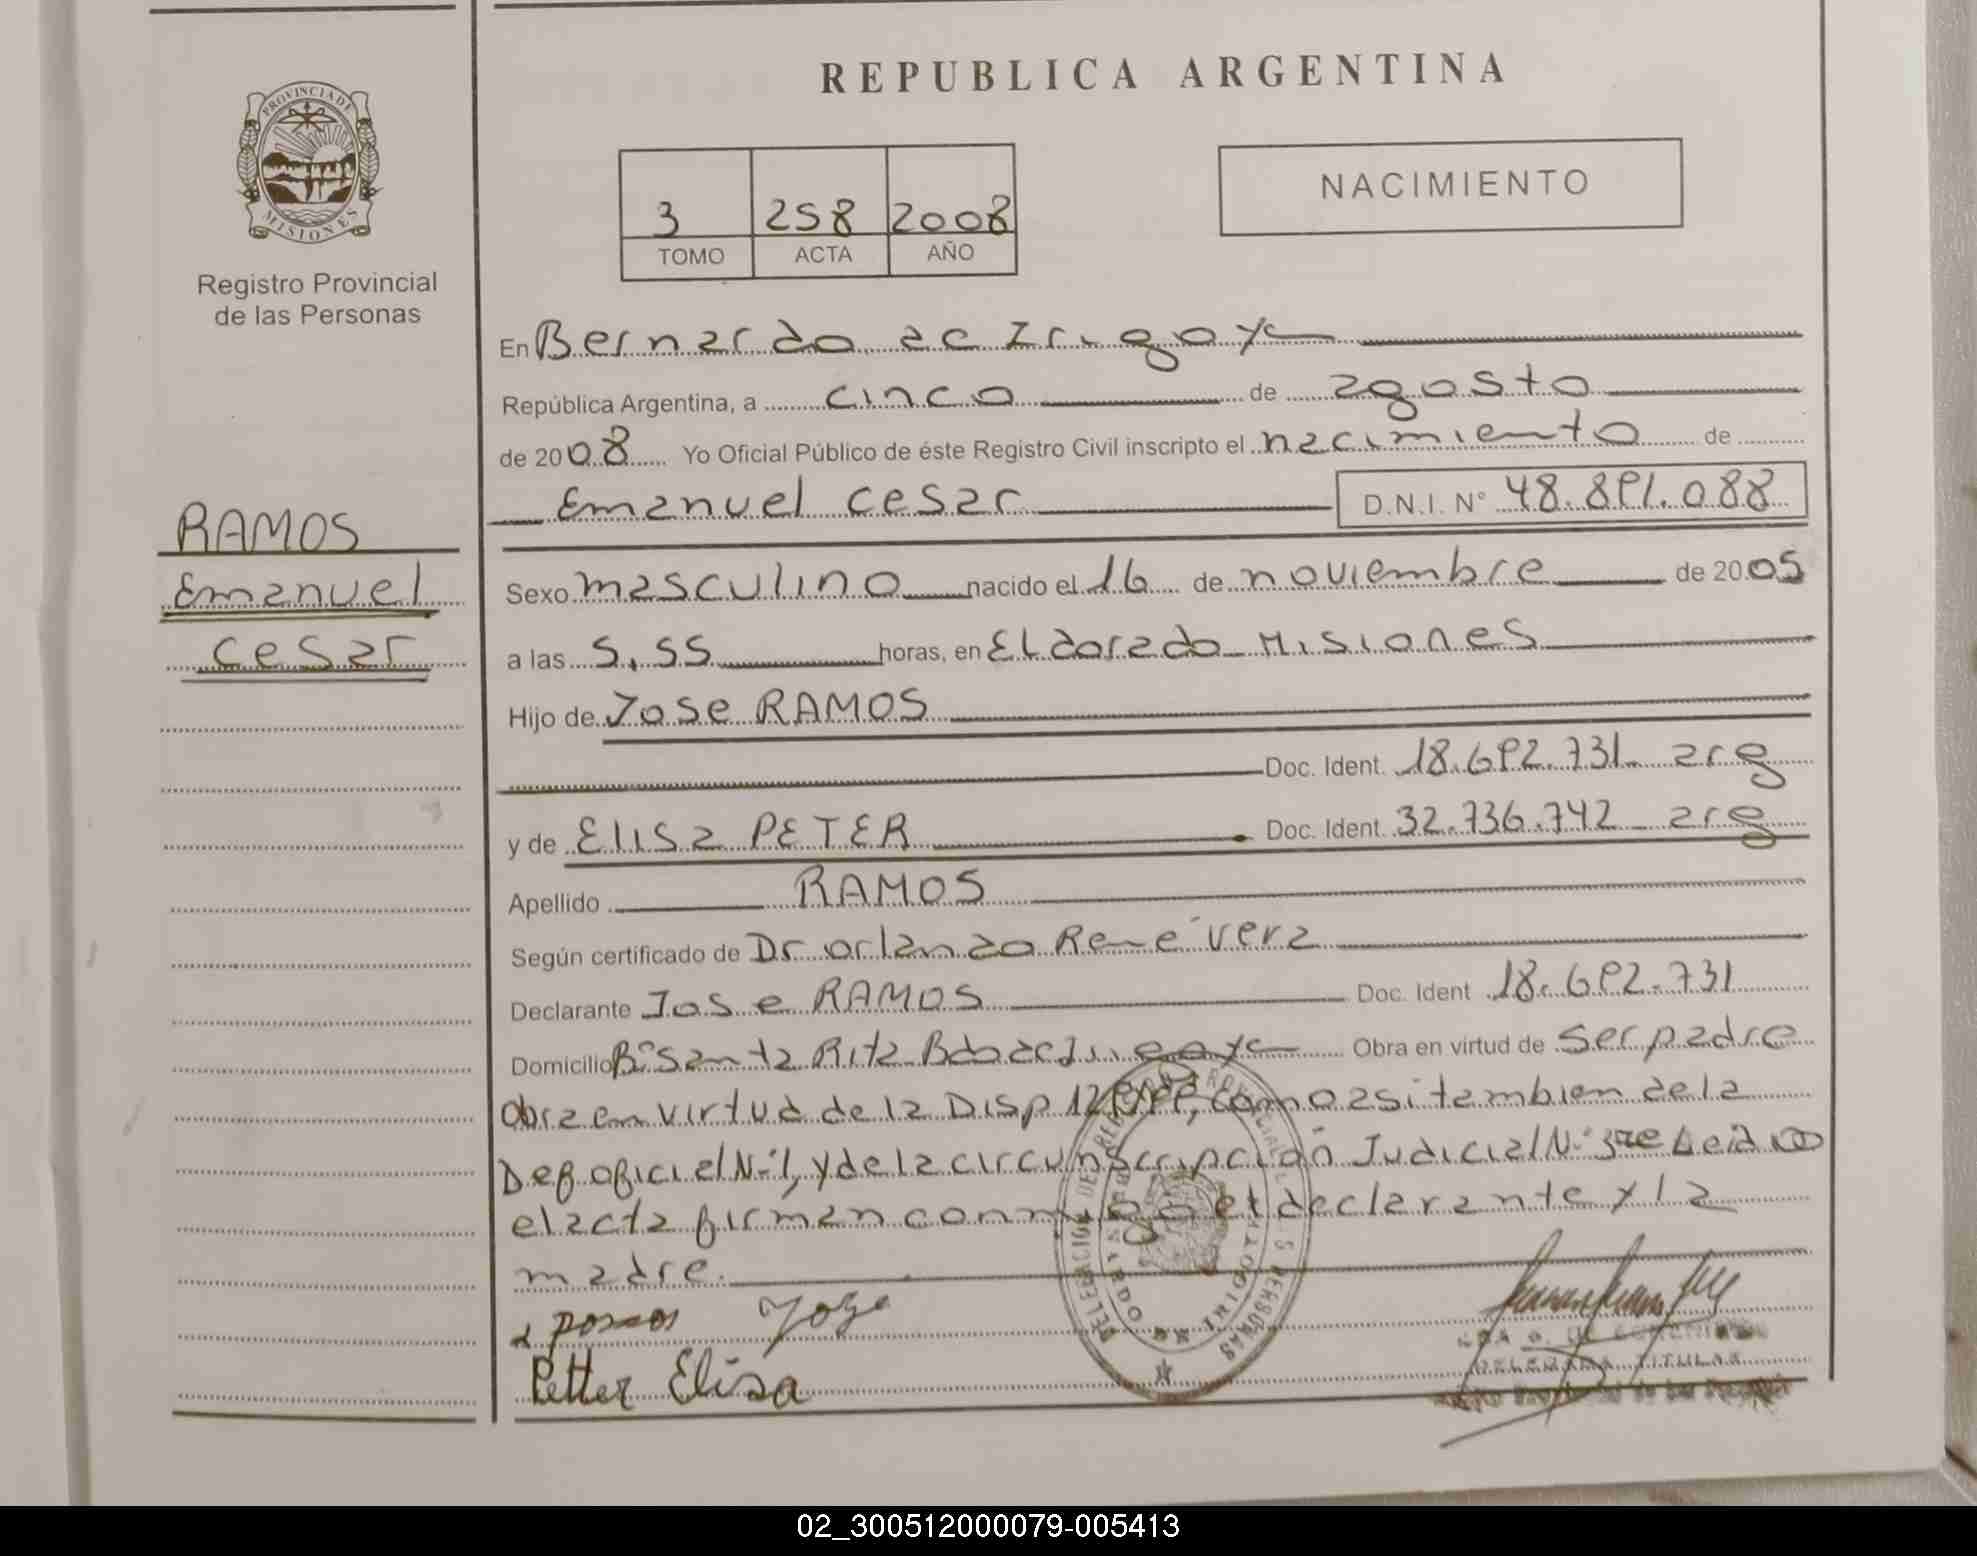 REPUBLICA ARGENTINA
PROVINCIA DE MISIONES
Registro Provincial
de las Personas
3 258 2008
TOMO ACTA AÑO
NACIMIENTO
En Bernardo de Irigoye
República Argentina, a cinco de agosto
de 2008 Yo Oficial Público de éste Registro Civil inscripto el nacimiento de
Emanuel Cesar D.N.I. Nº 48.891.088
RAMOS
Emanuel
Cesar
Sexo masculino nacido el 16 de noviembre de 2005
a las 5.55 horas, en Eldorado Misiones
Hijo de Jose RAMOS
Doc. Ident. 18.692.731 arg
y de Elisa PETER Doc. Ident. 32.736.742 arg
Apellido RAMOS
Según certificado de Dr orlando Rene vera
Declarante Jose RAMOS Doc. Ident 18.692.731
Domicilio Bº Santa Rita Bdo de Irigoye Obra en virtud de ser padre
obra en virtud de la Disp como asi tambien de la
Def oficial Nº 1, y de la circunscripción Judicial Nº Leida
el acta firman conmigo el declarante y la
madre.
Ramos Joze
Petter Elisa
DELEGACION DEL REGISTRO PROVINCIAL DE LAS PERSONAS
BERNARDO DE IRIGOYEN
DELEGADA TITULAR
02_300512000079-005413